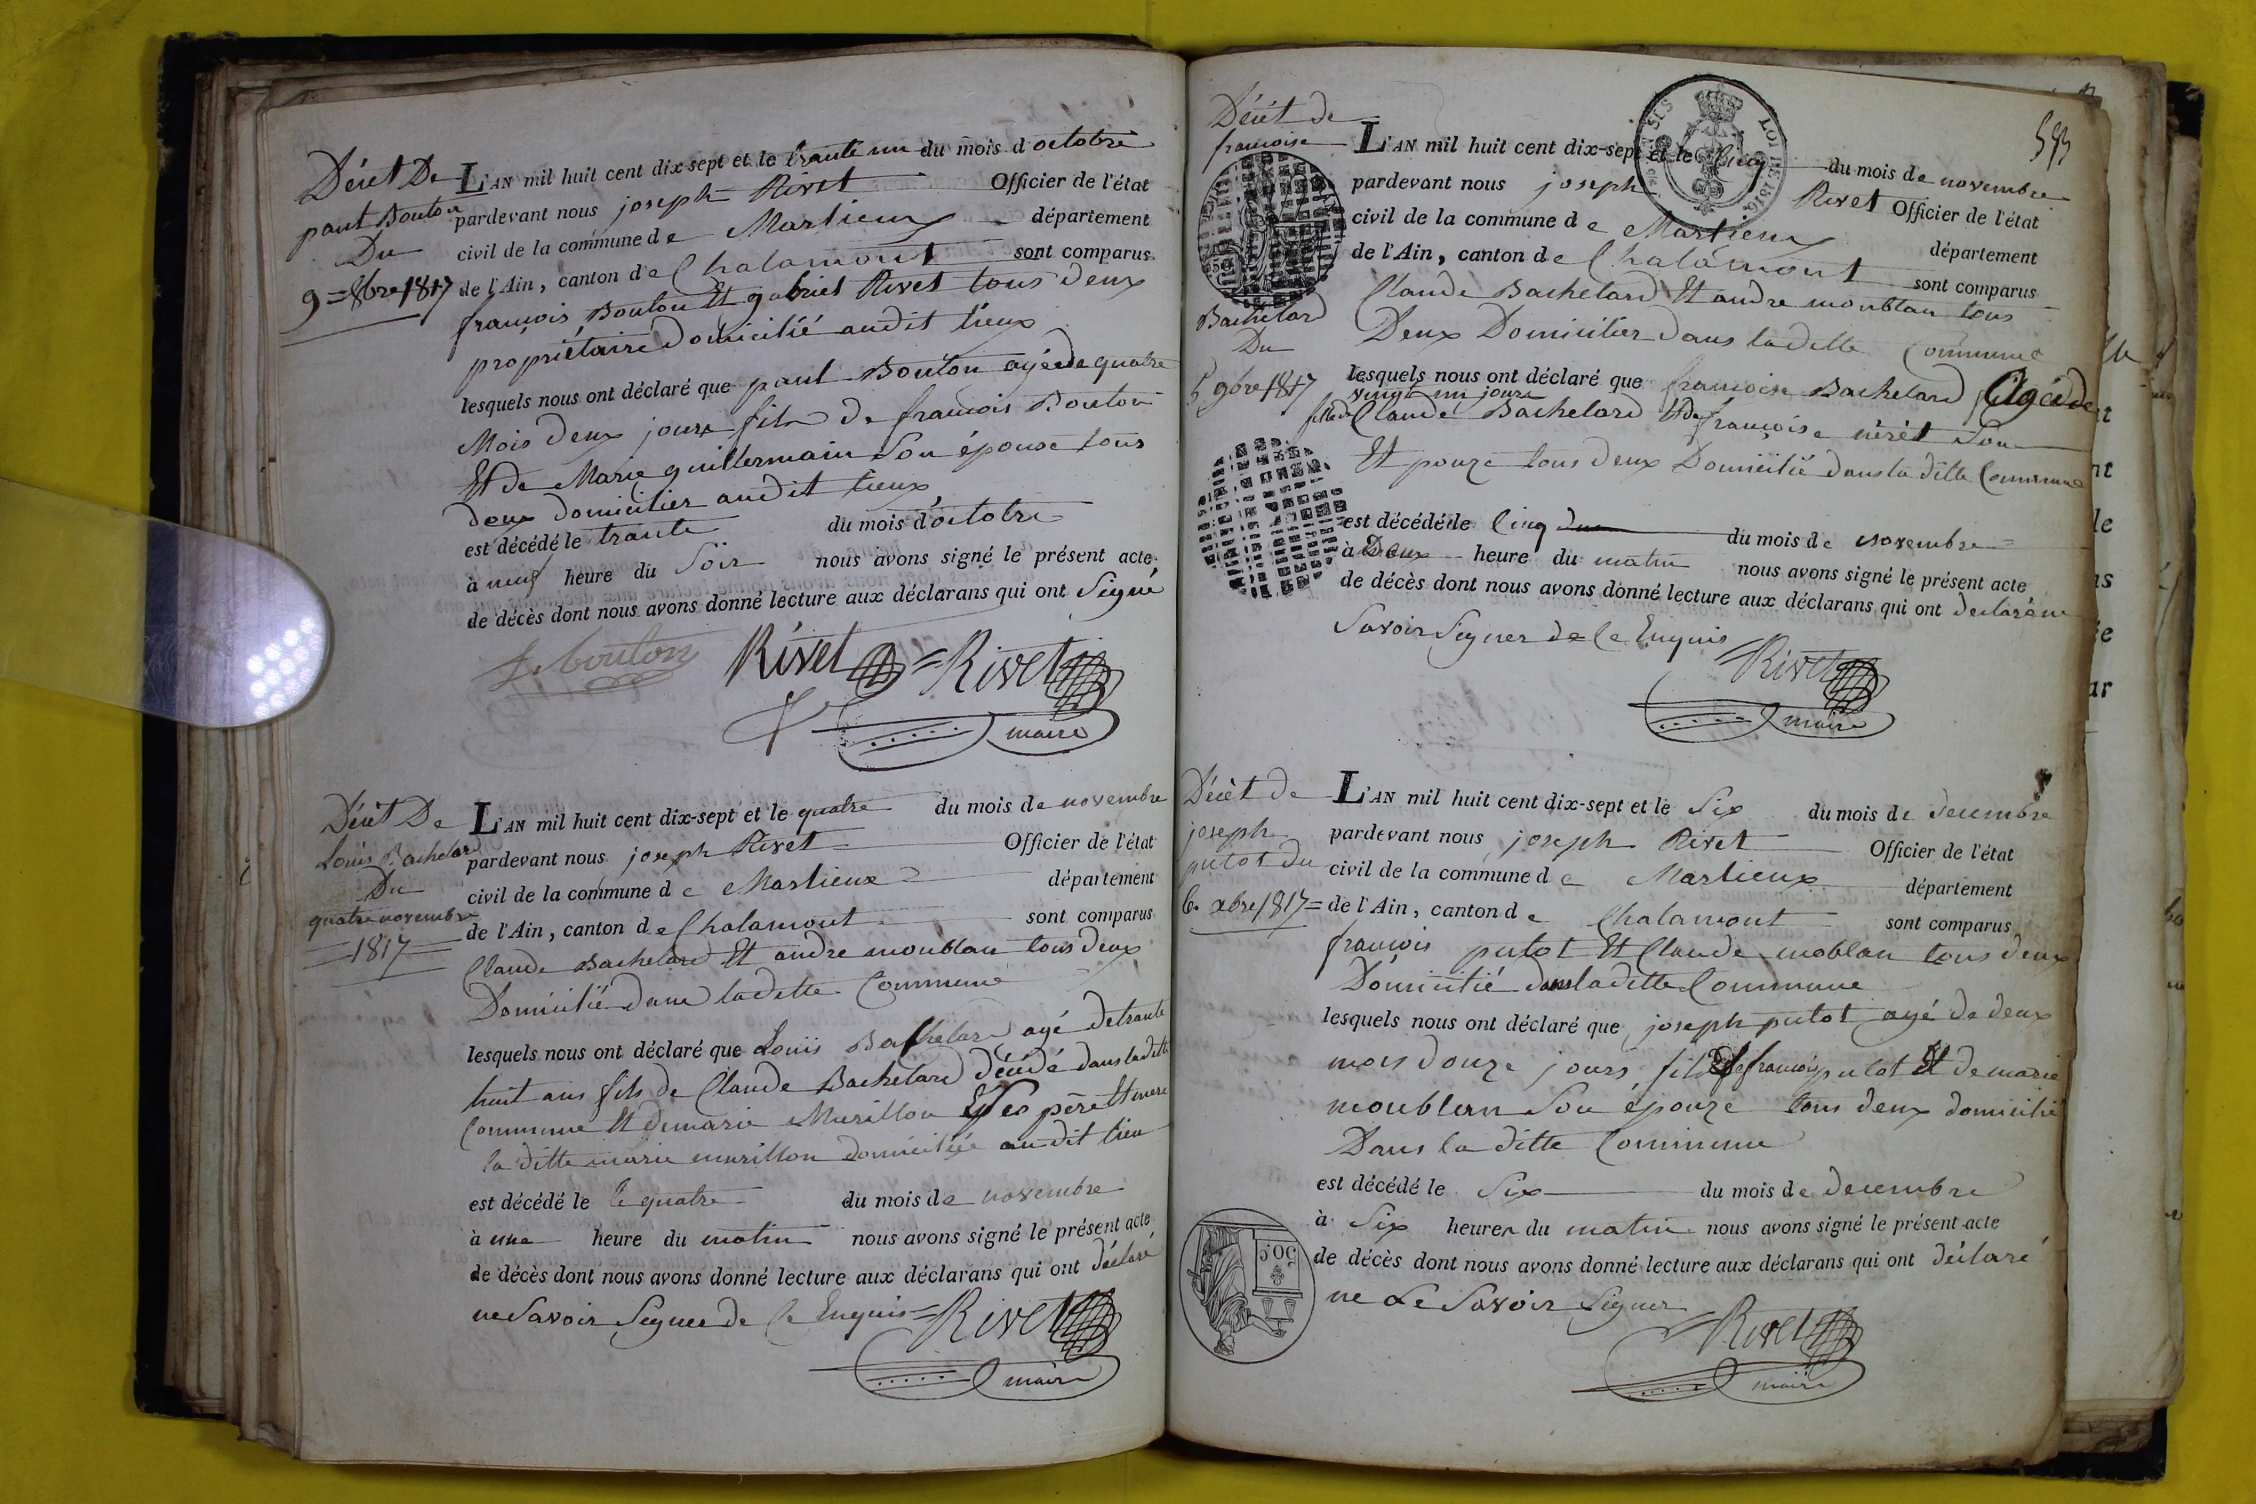 Décét De
paul Bouton
Du
9=8bre 1817
L'AN mil huit cent dix sept et le trante un du mois d octobre
pardevant nous joseph Rivet Officier de l'état
civil de la commune de Marlieux département
de l'Ain, canton de Chalamont sont comparus
françois Bouton Et gabriel Rivet tous deux
propriétaire domicilié audit lieux
lesquels nous ont déclaré que paul Bouton agée de quatre
Mois deux jours fils de francois Bouton
Et de Marie guillermain Son épouse tous
deux domicilier audit lieux
est décédé le trante du mois d'octobre
à neuf heure du Soir nous avons signé le présent acte
de décès dont nous avons donné lecture aux déclarans qui ont Signé
bouton Rivet = Rivet
maire
Décét De
Louis Bachelard
Du
quatre novembre
1817
L'AN mil huit cent dix-sept et le quatre du mois de novembre
pardevant nous joseph Rivet Officier de l'état
civil de la commune de Marlieux département
de l'Ain, canton de Chalamont sont comparus
Claude Bachelard Et andre moublan tous deux
Domicilié dans ladette Commune
lesquels nous ont déclaré que Louis Bachelard agé de trante
huit ans fils de Claude Bachelard décédé dans la ditte
Commune Et de marie Murillon Ses père Et mere
la ditte marie murillon domiciliée au dit lieu
est décédé le le quatre du mois de novembre
à une heure du matin nous avons signé le présent acte
de décès dont nous avons donné lecture aux déclarans qui ont déclaré
ne Savoir Signer de Ce Enquis = Rivet
maire
593
Décét de
francoise
Bachelard
Du
5 9bre 1817
L'AN mil huit cent dix-sept et le Cinq du mois de novembre
pardevant nous joseph Rivet Officier de l'état
civil de la commune de Marlieux département
de l'Ain, canton de Chalamont sont comparus
Claude Bachelard Et andre moublan tous
Deux Domicilier dans la dette Commune
lesquels nous ont déclaré que francoise Bachelard Agée de
vingt un jours
fille de Claude Bachelard Et de françoise néret Son
Et pouze tous deux Domicilié dans la ditte Commune
est décédé le Cinq du mois de novembre
à Deux heure du matin nous avons signé le présent acte
de décès dont nous avons donné lecture aux déclarans qui ont declaré ne
Savoir Signer de Ce Enquis
Rivet
maire
LOI DE 1816
Décèt de
joseph
putot du
6. xbre 1817 =
L'AN mil huit cent dix-sept et le Six du mois de decembre
pardevant nous joseph Rivet Officier de l'état
civil de la commune de Marlieux département
de l'Ain, canton de Chalamont sont comparus
francois putot Et Claude moblan tous deux
Domicilié dans ladette Commune
lesquels nous ont déclaré que joseph putot agé de deux
mois douze jours fils de francois putot Et de marie
moublan Son épouze tous deux domicilié
Dans la ditte Commune
est décédé le Six du mois de decembre
à Six heures du matin nous avons signé le présent acte
de décès dont nous avons donné lecture aux déclarans qui ont déclaré
ne Le Savoir Signer
Rivet
maire
50 C